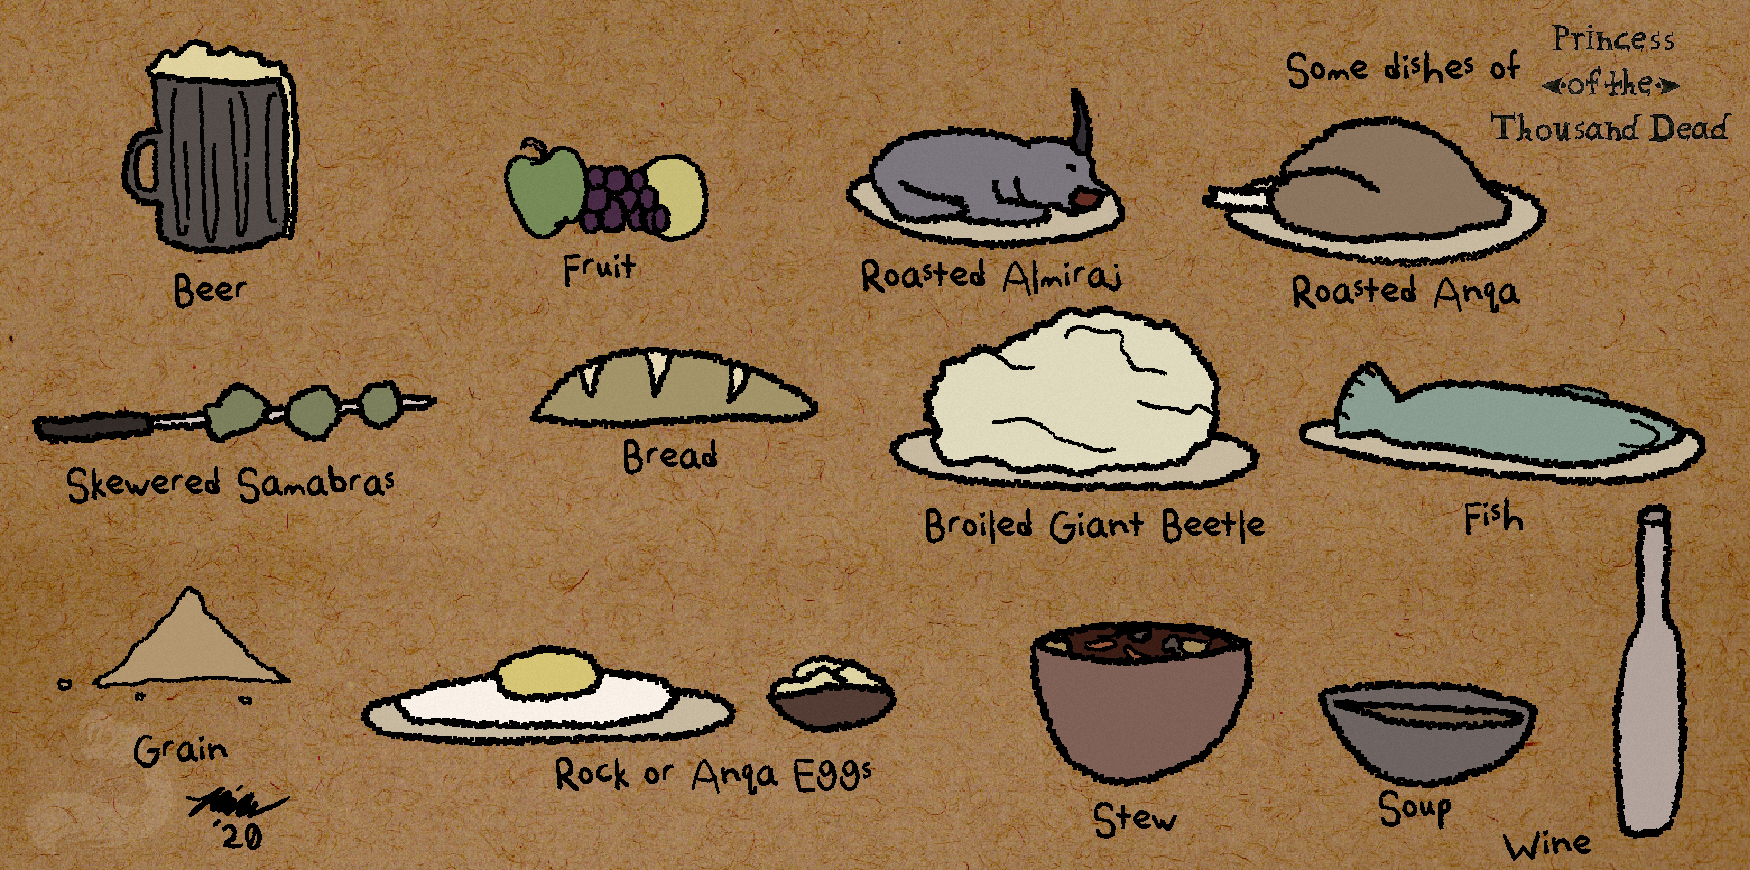 Some dishes of
Princess
of the
Thousand Dead
Beer
Fruit
Roasted Almiraj
Roasted Anqa
Skewered Samabras
Bread
Broiled Giant Beetle
Fish
Grain
Rock or Anqa Eggs
Stew
Soup
Wine
'20